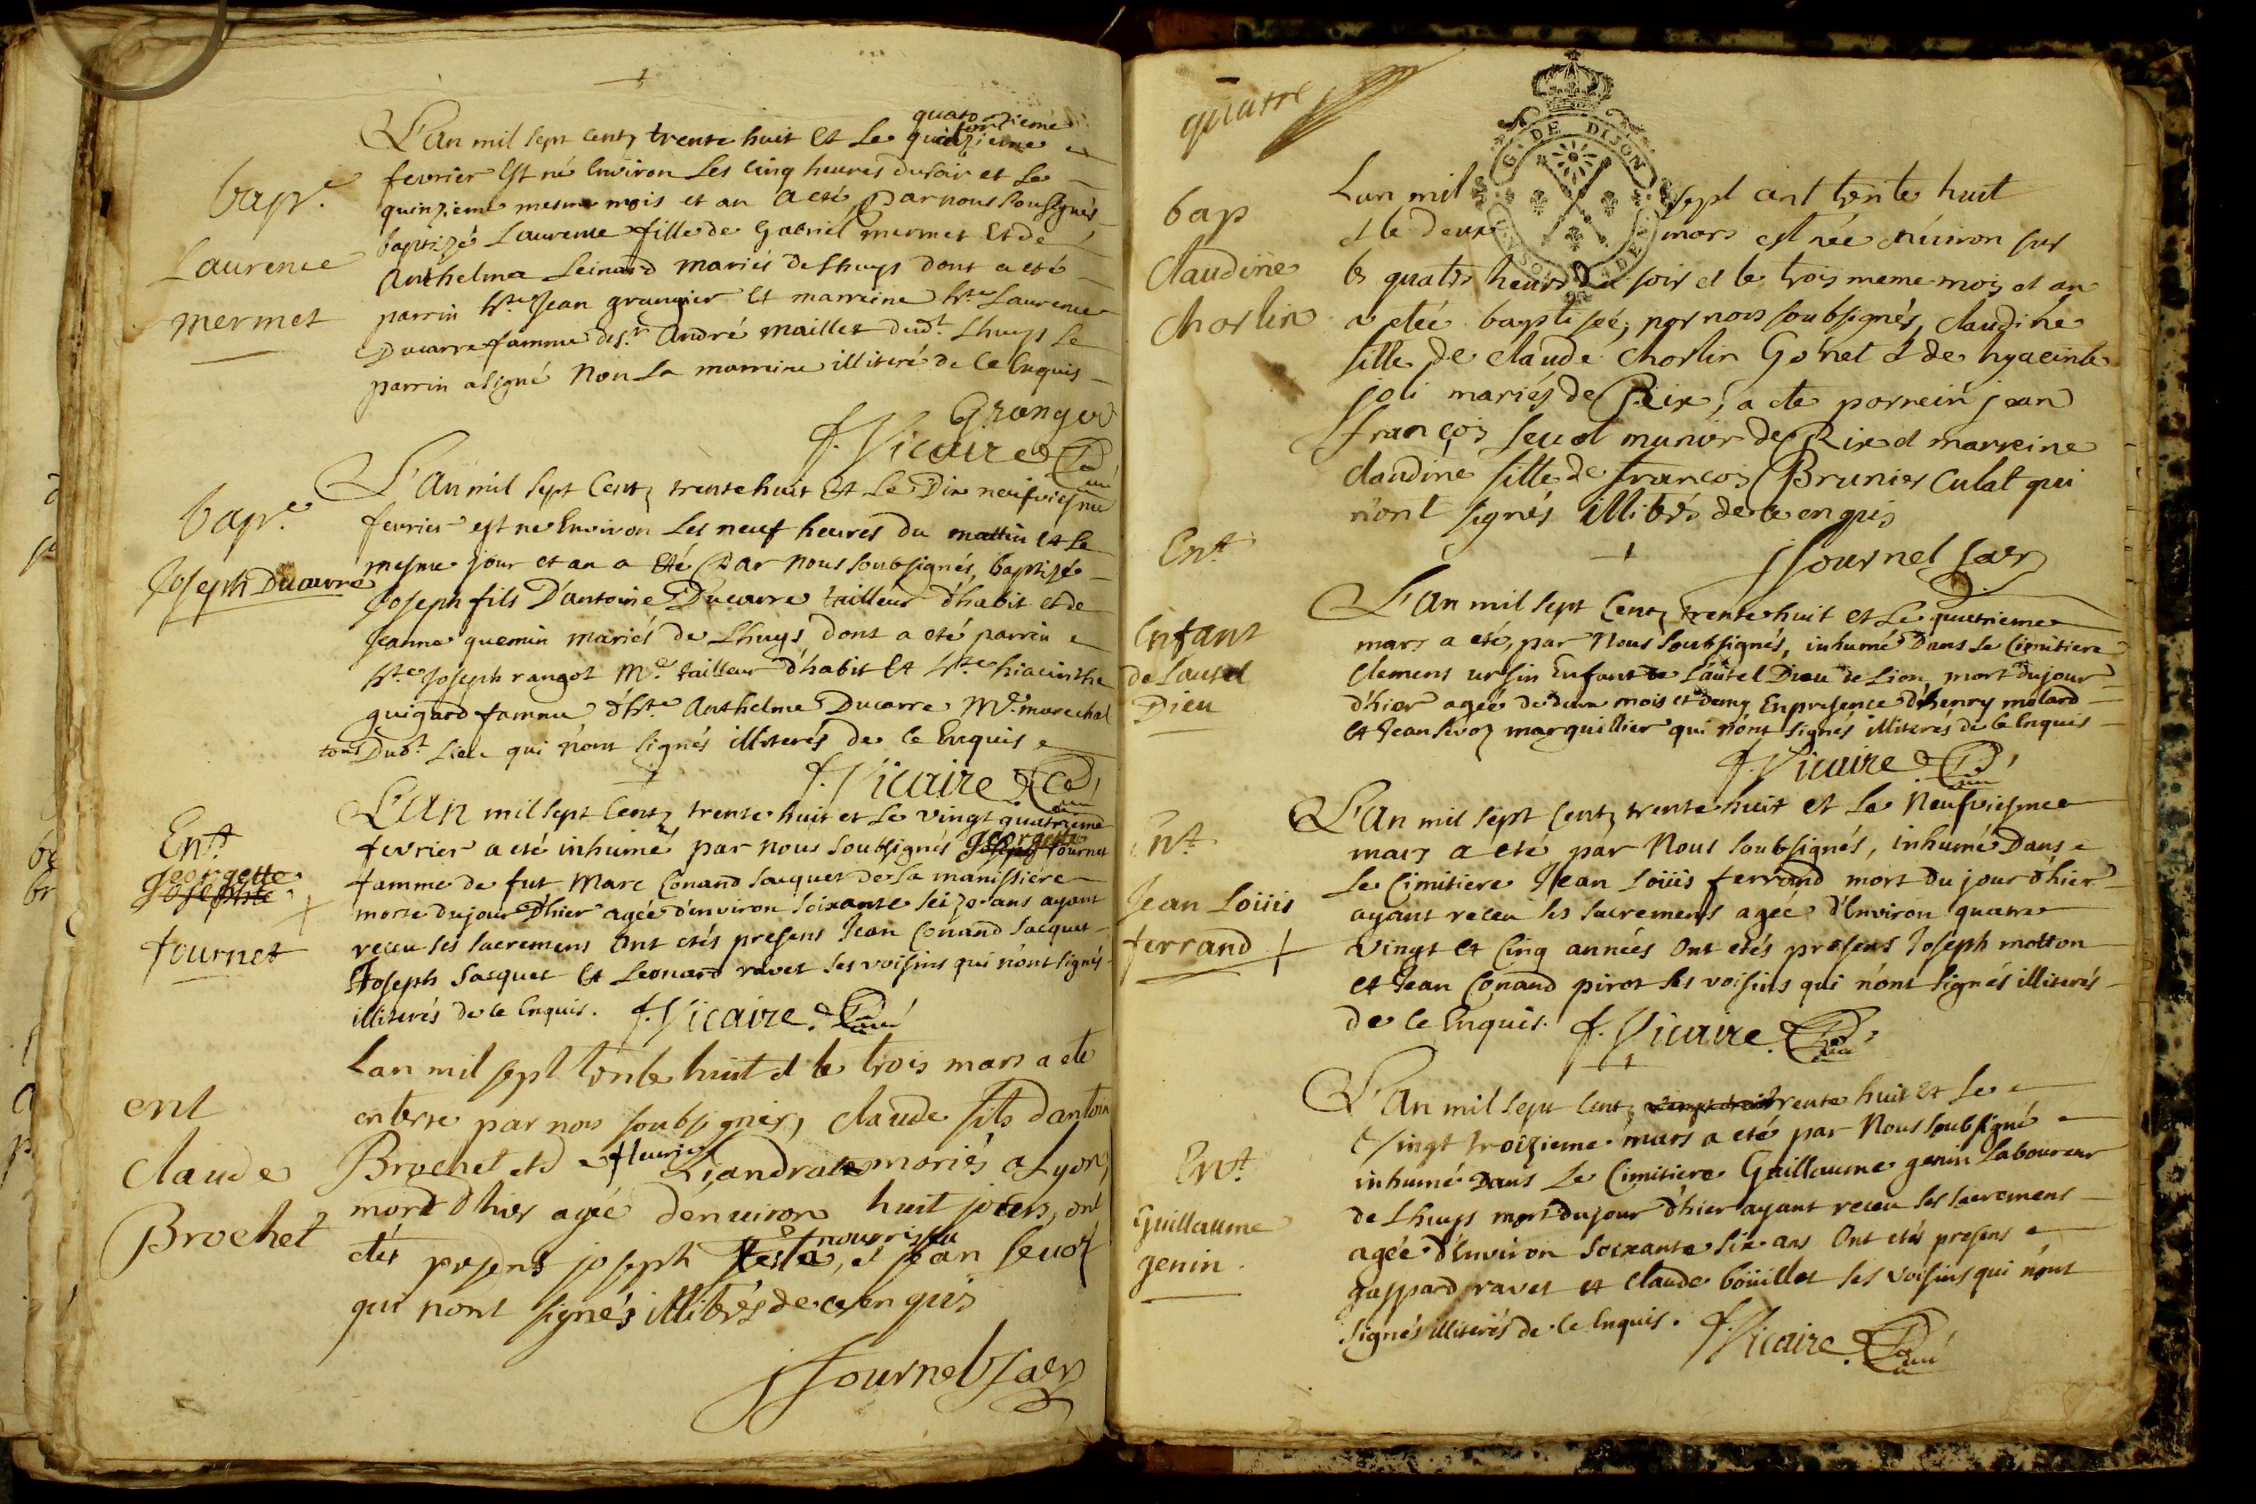 bap.e
Laurence
mermet
L'An mil sept centz trente huit et Le quatorzieme
fevrier Est né Environ Les cinq heures du soir et Le
quinzieme mesme mois et an a eté, par nous sousignés
baptizé Laurence fille de Gabriel mermet Et de
Anthelma Leinard mariés de Lhuys dont a eté
parrin h.te Jean grangier Et marreine h.te Laurence
Ducarre famme de s.r André maillet dud.t Lhuys Le
parrin a signé Non La marreine illiteré de Ce Enquis
Granger
f. Vicaire
bap.e
Joseph Ducarre
L'An mil sept Centz trente huit Et Le Dix neufviesme
fevrier est né Environ Les neuf heures du mattin Et Le
mesme jour et an a Eté Par nous soubsignés, baptizé
Joseph fils D'antoine Ducarre tailleur d'habit et de
Jeanne guemin mariés de Lhuys dont a eté parrin
h.te Joseph rangot M.e tailleur d'habit Et h.te hiacinthe
guigard famme d'h.te Anthelme Ducarre M.e marechal
tous Dud.t Lieu qui n'ont signés illiterés de Ce Enquis
f. Vicaire
En.t
Georgette
Josephte
fournet
L'An mil sept Centz trente huit et Le vingt quatrieme
fevrier a eté inhumé par nous soubsignés georgette fournet
famme de fut Marc Conand Jacquet de La manissiere
morte du jour D'hier agée d'environ soixante seize ans ayant
receu ses sacremens Ont etés presens Jean Conand Jacquet
Joseph Jacquet Et Leonard ravet ses voisins qui n'ont signés
illiterés de Ce Enquis. f. Vicaire
ent
claude
Brochet
Lan mil sept trente huit et le trois mars a ete
enterre par nous soubsignés, claude fils dantoine
Brochet et d fleurie Liandrat mariés a Lyon,
mort d'hier agé d'environ huit jours, ont
etés presens joseph teste, nourrissier et jean sevoz
qui n'ont signés illiterés de ce enquis
J fournel Sacr
quatre
G. DE DIJON
bap
Claudine
Chorlin
Lan mil sept cent trente huit
et le deux mars est née environ sur
les quatre heures Du soir et le trois meme mois et an
a etée baptisée, par nous soubsignés, claudine
fille de claude Chorlin Gonet et de hyacinte
joli mariés de Rix, a ete parrein jean
françois sevoz munier de Rix et marreine
claudine fille de françois Brunier Culat qui
n'ont signés illiterés de ce enquis
J fournel Sacr
En.t
Enfant
de Lautel
Dieu
L'An mil sept Centz trente huit et Le quatrieme
mars a eté, par Nous soubsignés, inhumé Dans Le Cimitiere
Clemens ursin Enfant de L'autel Dieu de Lion, mort du jour
d'hier agée de deux mois et demy En presence d'henry molard
et Jean sevoz marguillier qui n'ont signés illiterés de Ce Enquis
f. Vicaire
En.t
Jean Loüis
ferrand
L'An mil sept Centz trente huit et Le Neufviesme
mars a eté par Nous soubsignés, inhumé Dans
Le Cimitiere Jean Loüis ferrand mort du jour d'hier
ayant receu ses sacremens agée d'Environ quatre
vingt et Cinq années Ont etés presens Joseph motton
et Jean Conand pirot ses voisins qui n'ont signés illiterés
de Ce Enquis. f. Vicaire
En.t
Guillaume
genin.
L'An mil sept Centz trente huit et Le
Vingt troizieme mars a eté par Nous soubsigné
inhumé Dans Le Cimitiere Guillaume genin Laboureur
de Lhuys mort du jour d'hier ayant receu ses sacremens
agée d'Environ soixante six ans Ont etés presens
gaspard ravet et claude boüillet ses voisins qui n'ont
signés illiterés de Ce Enquis. f. Vicaire